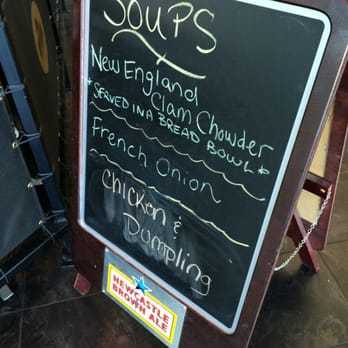 SOUPS
New England
Clam Chowder
*SERVED IN A BREAD BOWL*
French Onion
Chicken &
Dumpling
NEWCASTLE
BROWN ALE